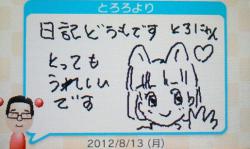 とろろより
日記どうもです とろにゃん
とっても
うれしい
です
2012/8/13 (月)